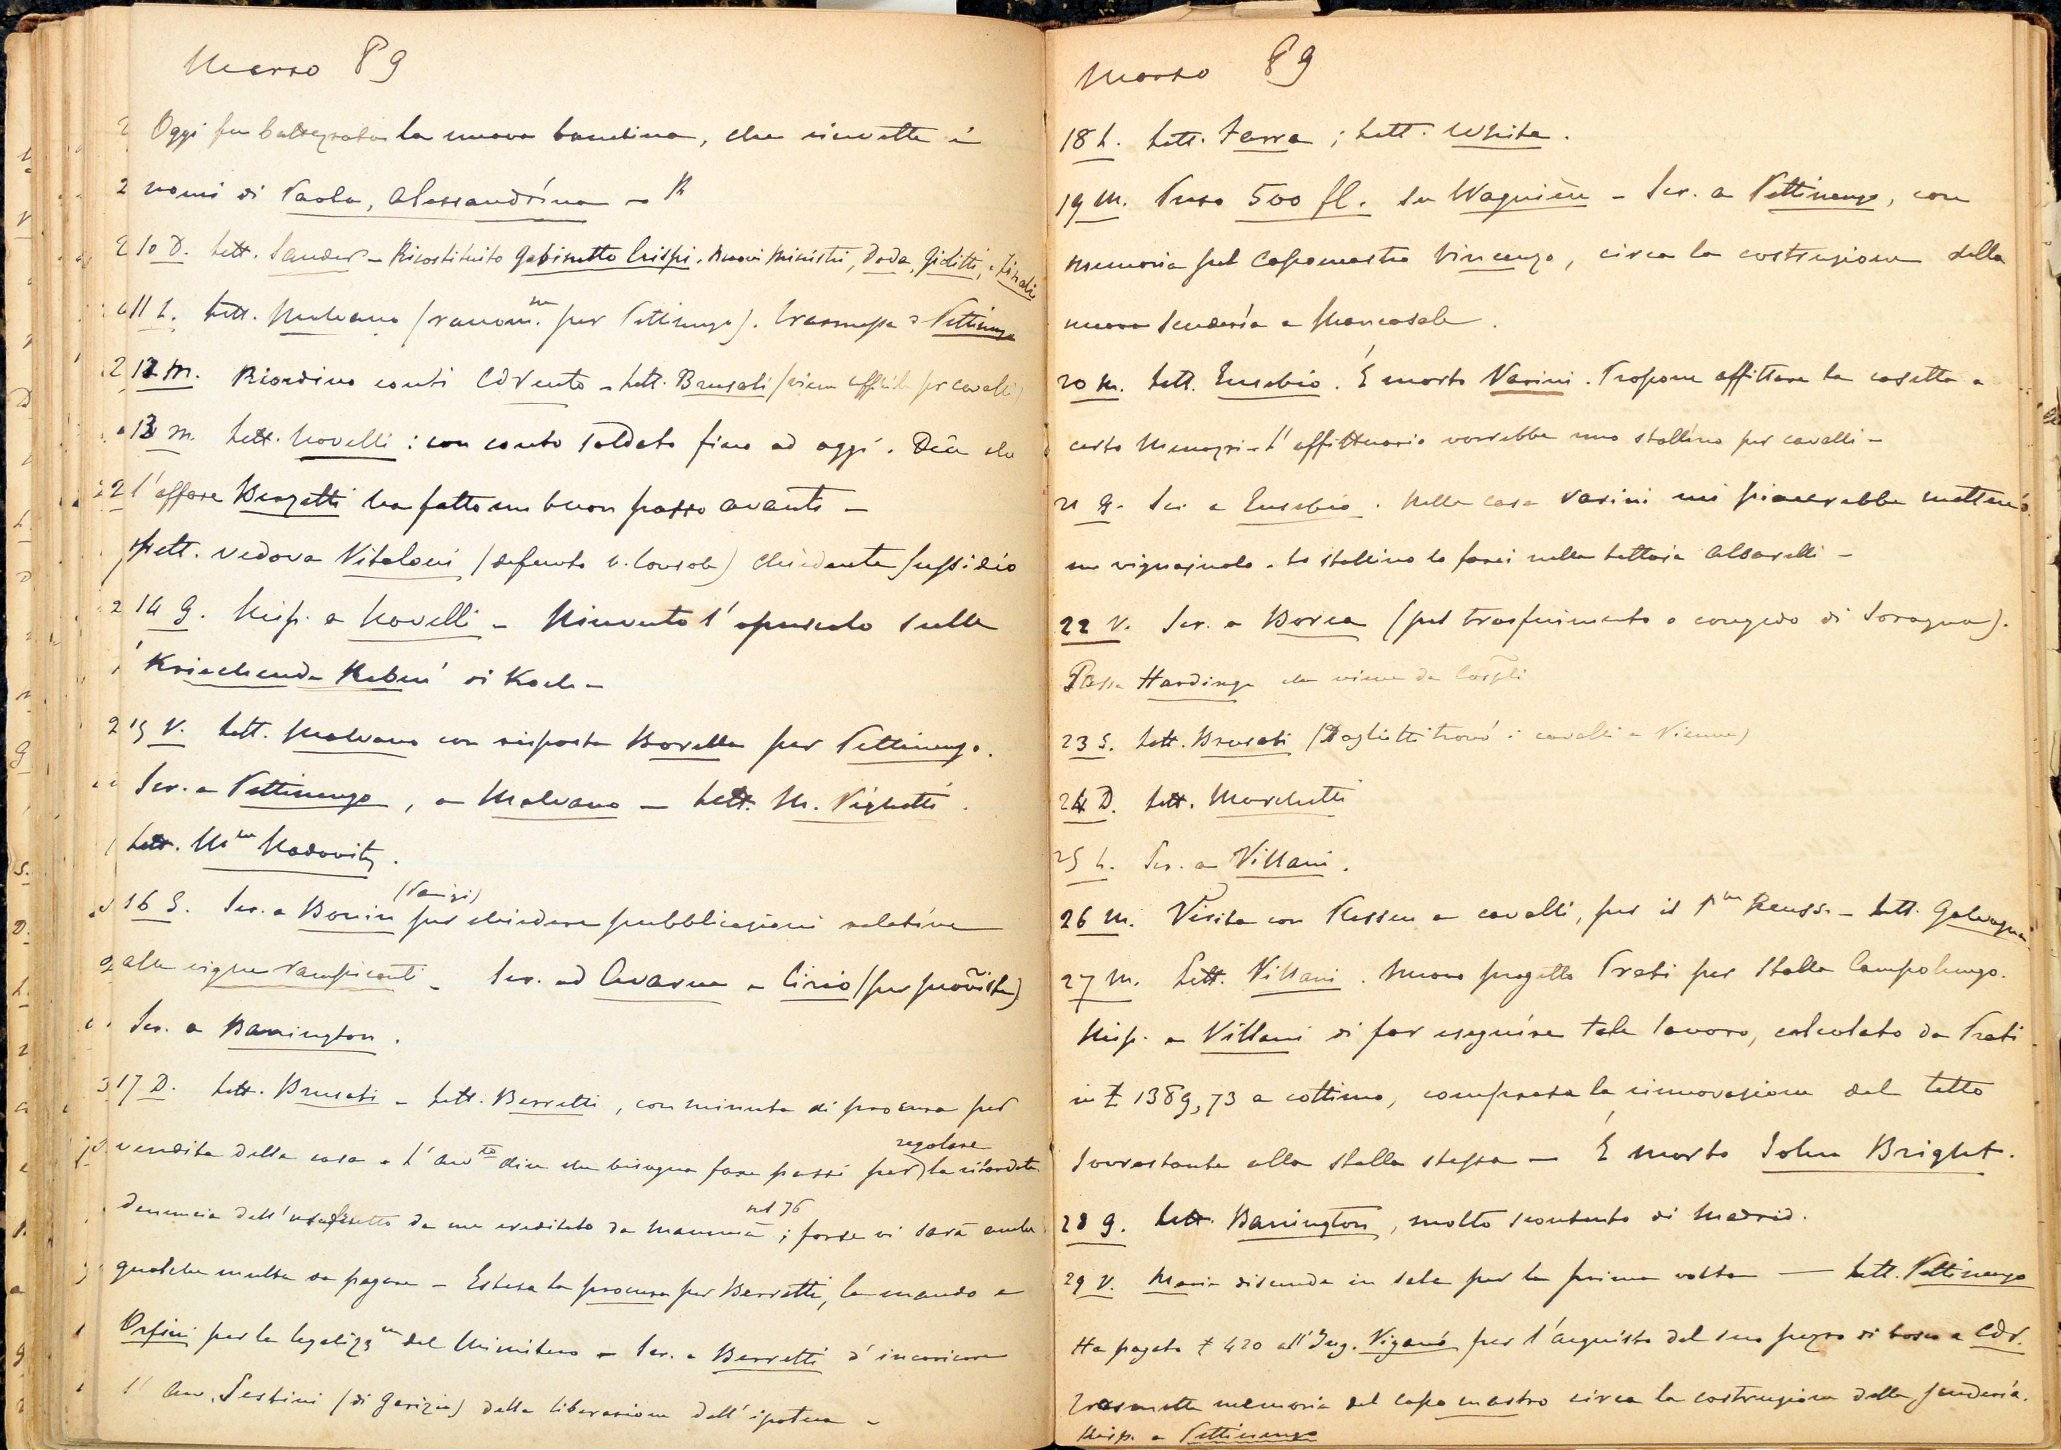 Marzo 89
Oggi fu battezzata la nuova bambina, che ricevette i
nomi di Paola, Alessandrina - R
10 D. Lett. Sander - Ricostituito gabinetto Crispi. Nuovi ministri, Doda, Giolitti, e
11 L. Lett. Malvano (ranom. per Pettinengo). Trasmessa a Pettinengo
12 M. Riordino conti CdVento - Lett. Brusati (viene uffiziale per cavalli)
13 M. Lett. Novelli: con conto soldato fino ad oggi. Dice che
l'affare Benzetti ha fatto un buon passo avanti -
Lett. vedova Vitaloni (defunto v. Console) chiedente sussidio
14 G. Risp. a Novelli - Ricevuto l'opuscolo sulle
'Kriechende Reben' di Koch -
15 V. Lett. Malvano con risposta Borella per Pettinengo.
Scr. a Pettinengo, a Malvano - Lett. M. Vighetti.
Lett. Mme Nadovitz.
16 S. Scr. a Bonin (Parigi) per chiedere pubblicazioni relative
alle vigne rampicanti - Scr. ad Avarna e Cirio (per provviste)
Scr. a Barrington.
17 D. Lett. Brusati - Lett. Berretti, con minuta di procura per
vendita della casa - L'avvto dice che bisogna fare passi per regolare la ritardata
denuncia dell'usufrutto da me ereditato da mammà nel 76; forse vi sarà anche
qualche multa da pagare - Estesa la procura per Berretti, la mando a
Orfini per la legalizzne del Ministero - Scr. a Berretti d'incaricare
l'avv. Pestini (di Gorizia) della liberazione dell'ipoteca -
Marzo 89
18 L. Lett. Ferra; Lett. White.
19 M. Preso 500 fl. da Wagnière - Scr. a Pettinengo, con
memoria pel capomastro Vincenzo, circa la costruzione della
nuova scuderia a Mancasale.
20 M. Lett. Eusebio. È morto Varini. Propone affittare la casetta a
certo Menozzi - L'affittuario vorrebbe uno stallino per cavalli -
21 G. Scr. a Eusebio. Nella casa Varini mi piacerebbe metterci
un vignajuolo. Lo stallino lo farei nella tettoia Albarelli -
22 V. Scr. a Borea (pel trasferimento o congedo di Soragna).
Passa Hardinge che viene da Cospoli
23 S. Lett. Brusati (Pagliotti trovò i cavalli a Vienna)
24 D. Lett. Marchetti
25 L. Scr. a Villani.
26 M. Visita con Plessen a cavalli, per il Pne Reuss. - Lett. Galvagna
27 M. Lett. Villani. Nuovo progetto Prati per stalla Campolungo.
Risp. a Villani di far eseguire tale lavoro, calcolato da Prati
in £ 1389,73 a cottimo, compresa la rinnovazione del tetto
sovrastante alla stalla stessa - È morto John Bright.
28 G. Lett. Barrington, molto scontento di Madrid.
29 V. Maria discende in sala per la prima volta — Lett. Pettinengo
Ha pagato £ 420 all'Ing. Viganò per l'acquisto del suo pezzo di bosco a CdV.
Trasmette memoria del capo mastro circa la costruzione della scuderia.
Risp. a Pettinengo